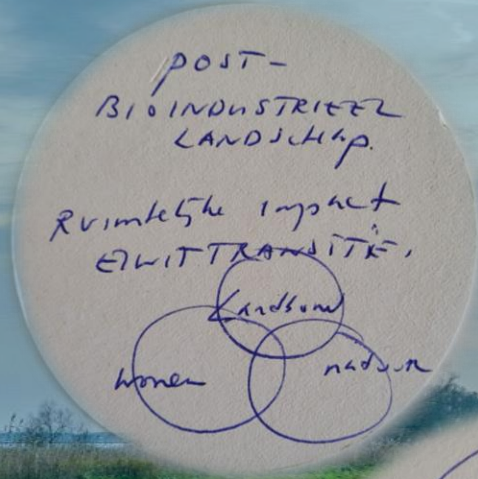 POST-
BIOINDUSTRIEEL
LANDSCHAP.
Ruimtelijke impact
EIWITTRANSITIE.
Landbouw
wonen
natuur